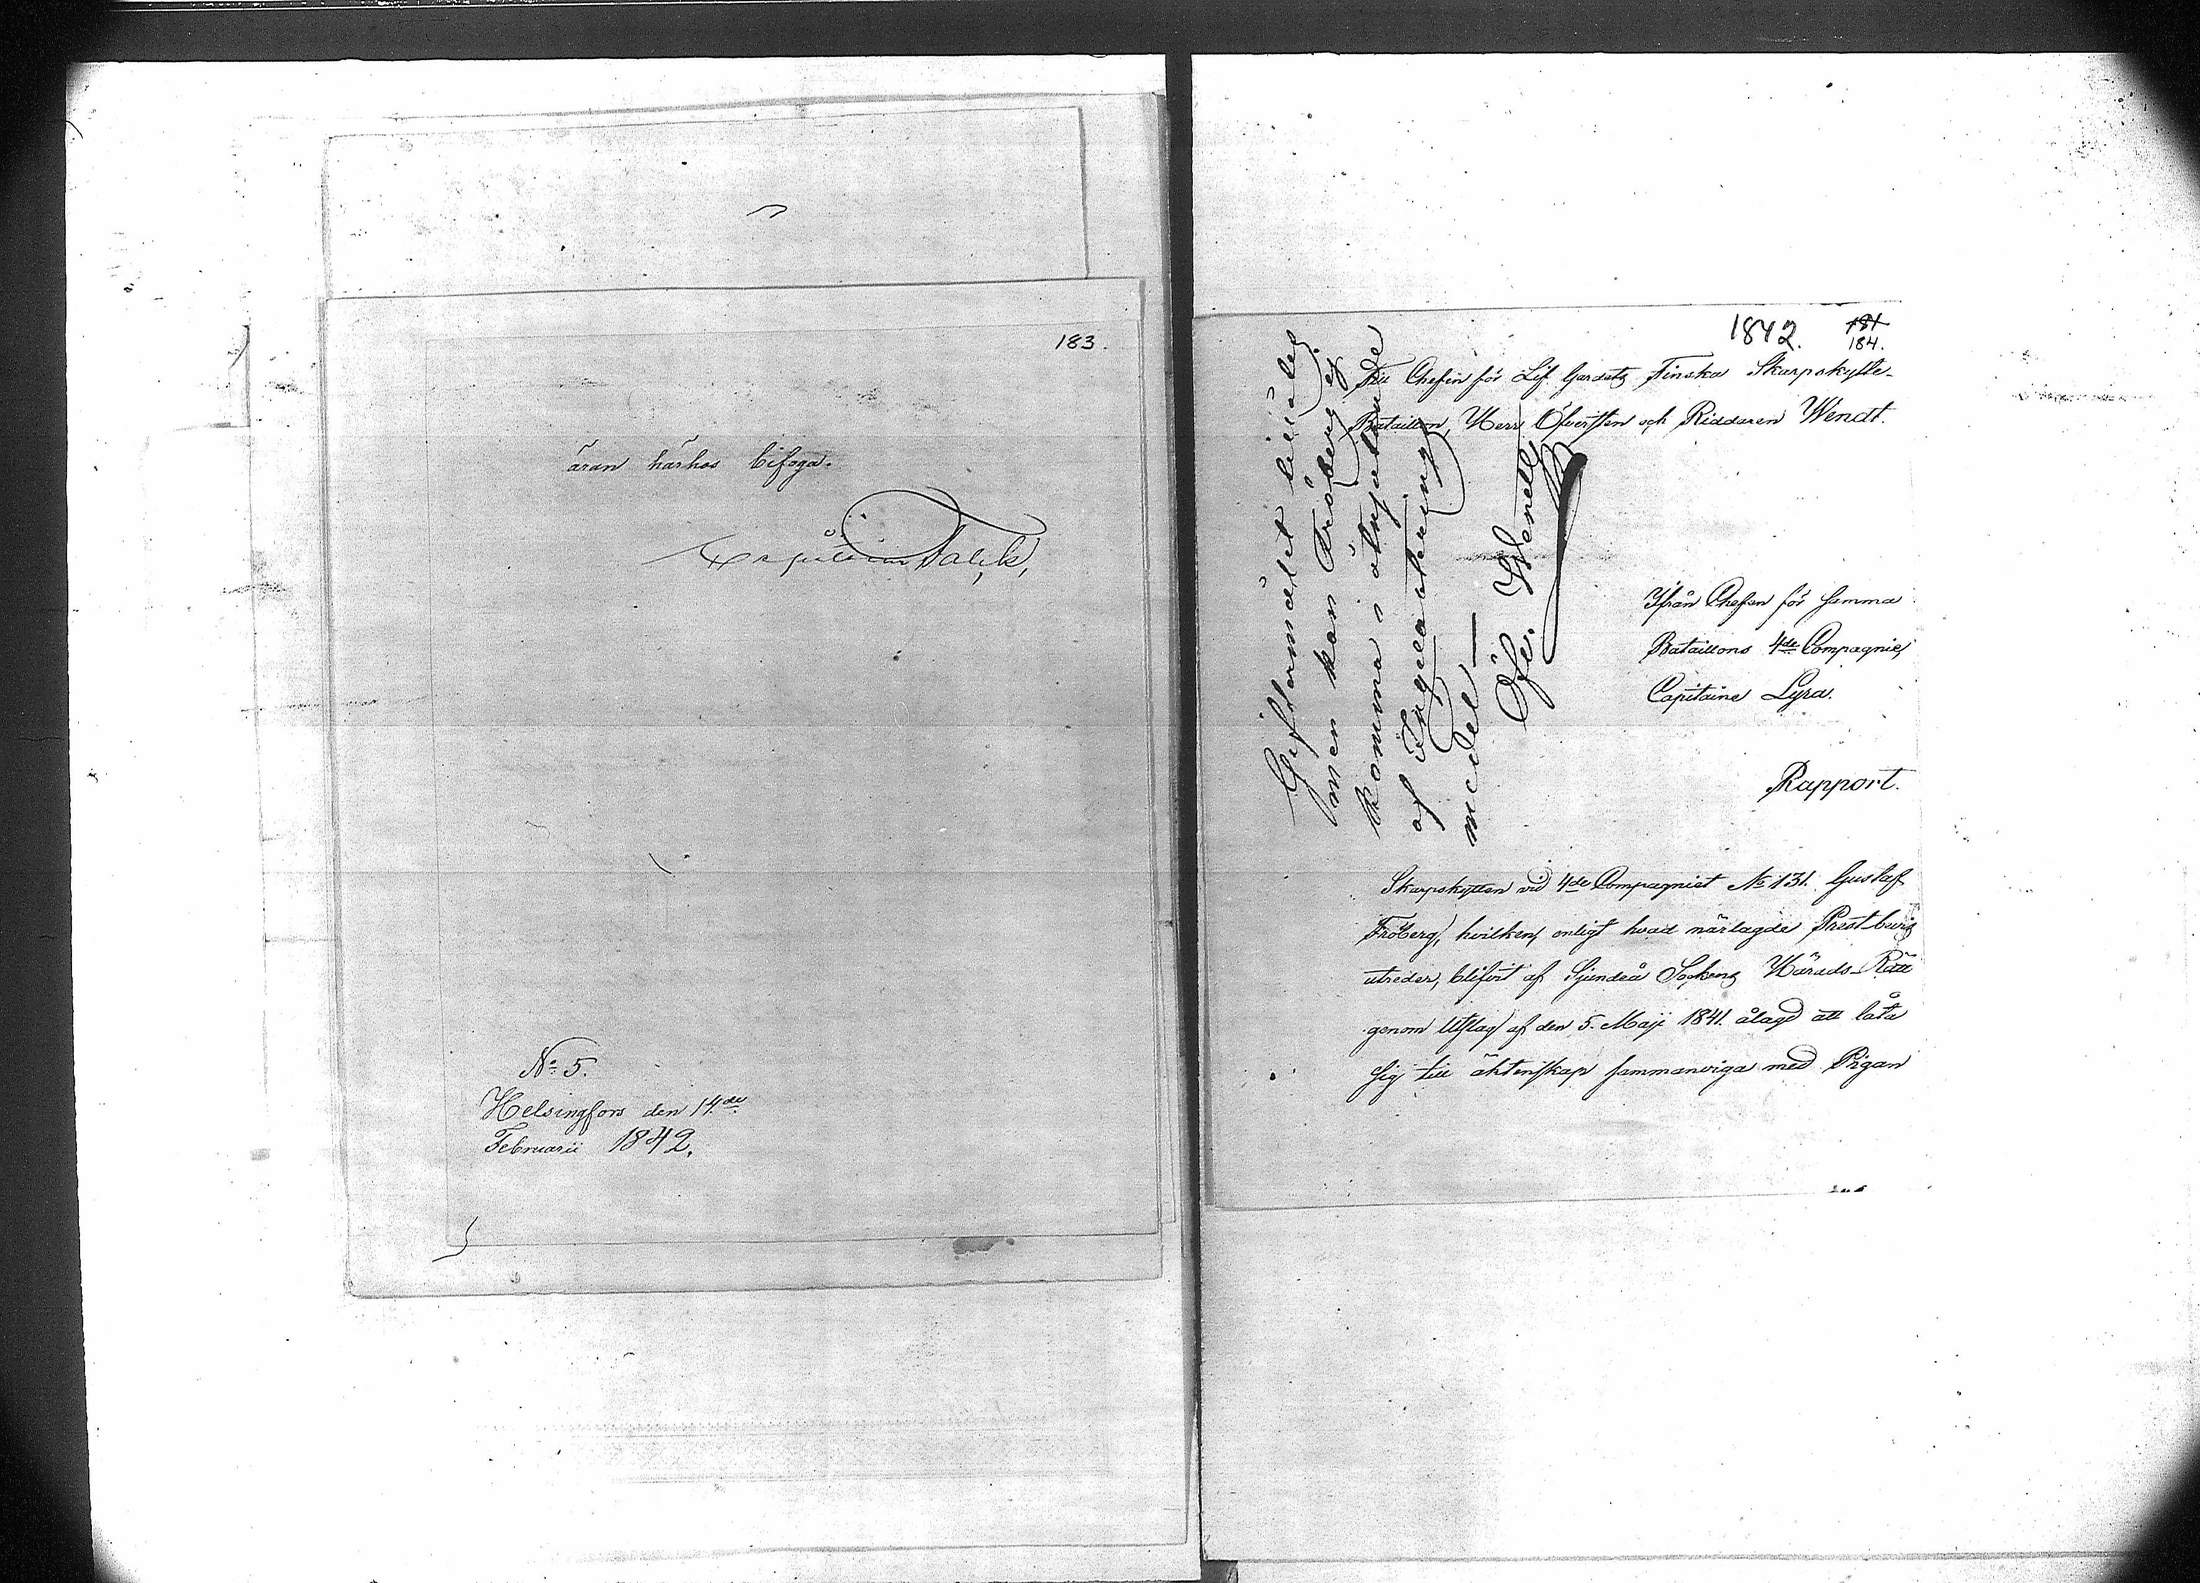 183.
äran härhos bifoga.
Falck,
No 5.
Helsingfors den 14de
Februarii 1842.
1842.
181
184.
Till Chefen för Lif Gardets Finska Skarpskytte-
Bataillon, Herr Öfversten och Riddaren Wendt.
Giftermålet tillåtes
men kan Fröberg ej
komma i åtnjutande
af Inqvartering
medel —
Öfv. Wendt
Ifrån Chefen för samma
Bataillons 4de Compagnie,
Capitaine Lyra.
Rapport.
Skarpskytten vid 4de Compagniet No 131. Gustaf
Fröberg, hvilken, enligt hvad närlagde Prestbevis
utreder, blifvit af Sjundeå Sockens Härads-Rätt
genom Utslag af den 5. Maji 1841. ålagd att låta
sig till äktenskap sammanviga med Pigan